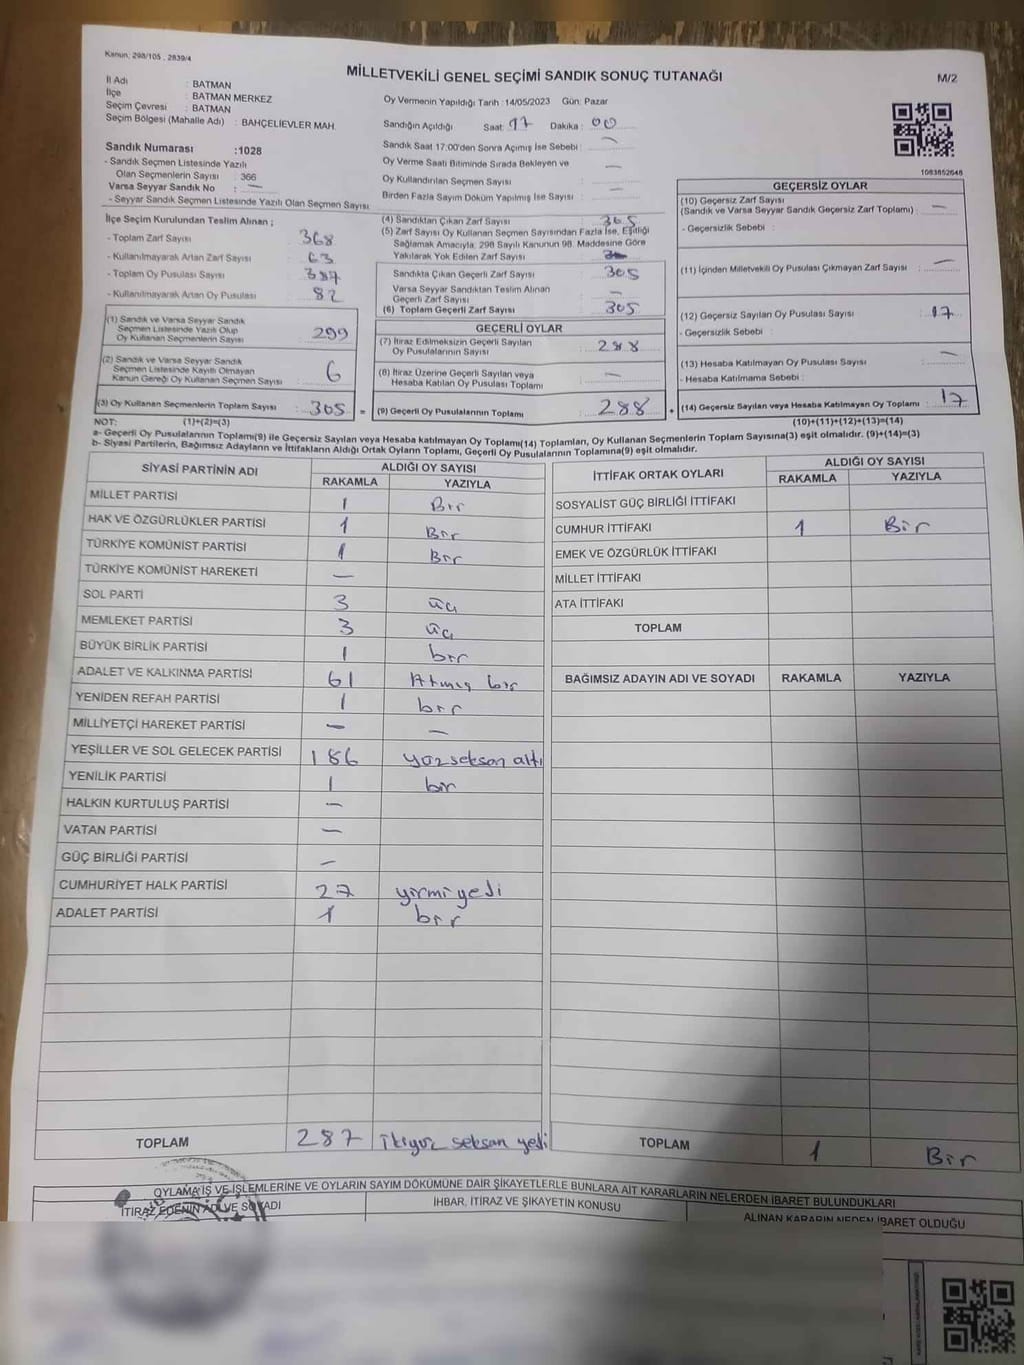 Kanun: 298/105 , 2839/4
MİLLETVEKİLİ GENEL SEÇİMİ SANDIK SONUÇ TUTANAĞI
M/2
İl Adı : BATMAN
İlçe : BATMAN MERKEZ
Seçim Çevresi : BATMAN
Seçim Bölgesi (Mahalle Adı) : BAHÇELİEVLER MAH.
Oy Vermenin Yapıldığı Tarih :14/05/2023 Gün: Pazar
Sandığın Açıldığı Saat: 17 Dakika : 00
Sandık Saat 17:00'den Sonra Açımış İse Sebebi : —
Oy Verme Saati Bitiminde Sırada Bekleyen ve
Oy Kullandırılan Seçmen Sayısı : —
Birden Fazla Sayım Döküm Yapılmış İse Sayısı : —
1083852648
Sandık Numarası :1028
- Sandık Seçmen Listesinde Yazılı
Olan Seçmenlerin Sayısı : 366
Varsa Seyyar Sandık No : —
- Seyyar Sandık Seçmen Listesinde Yazılı Olan Seçmen Sayısı
İlçe Seçim Kurulundan Teslim Alınan ;
- Toplam Zarf Sayısı : 368
- Kullanılmayarak Artan Zarf Sayısı : 63
- Toplam Oy Pusulası Sayısı : 387
- Kullanılmayarak Artan Oy Pusulası : 82
(1) Sandık ve Varsa Seyyar Sandık
Seçmen Listesinde Yazılı Olup
Oy Kullanan Seçmenlerin Sayısı : 299
(2) Sandık ve Varsa Seyyar Sandık
Seçmen Listesinde Kayıtlı Olmayan
Kanun Gereği Oy Kullanan Seçmen Sayısı : 6
(3) Oy Kullanan Seçmenlerin Toplam Sayısı : 305 =
(4) Sandıktan Çıkan Zarf Sayısı : 305
(5) Zarf Sayısı Oy Kullanan Seçmen Sayısından Fazla İse, Eşitliği
Sağlamak Amacıyla, 298 Sayılı Kanunun 98. Maddesine Göre
Yakılarak Yok Edilen Zarf Sayısı :
Sandıkta Çıkan Geçerli Zarf Sayısı : 305
Varsa Seyyar Sandıktan Teslim Alınan
Geçerli Zarf Sayısı : —
(6) Toplam Geçerli Zarf Sayısı : 305
GEÇERLİ OYLAR
(7) İtiraz Edilmeksizin Geçerli Sayılan
Oy Pusulalarının Sayısı : 288
(8) İtiraz Üzerine Geçerli Sayılan veya
Hesaba Katılan Oy Pusulası Toplamı : —
(9) Geçerli Oy Pusulalarının Toplamı : 288 +
GEÇERSİZ OYLAR
(10) Geçersiz Zarf Sayısı
(Sandık ve Varsa Seyyar Sandık Geçersiz Zarf Toplamı) : —
- Geçersizlik Sebebi :
(11) İçinden Milletvekili Oy Pusulası Çıkmayan Zarf Sayısı : —
(12) Geçersiz Sayılan Oy Pusulası Sayısı : 17
- Geçersizlik Sebebi :
(13) Hesaba Katılmayan Oy Pusulası Sayısı : —
- Hesaba Katılmama Sebebi :
(14) Geçersiz Sayılan veya Hesaba Katılmayan Oy Toplamı : 17
NOT: (1)+(2)=(3)
(10)+(11)+(12)+(13)=(14)
a- Geçerli Oy Pusulalarının Toplamı(9) ile Geçersiz Sayılan veya Hesaba katılmayan Oy Toplamı(14) Toplamları, Oy Kullanan Seçmenlerin Toplam Sayısına(3) eşit olmalıdır. (9)+(14)=(3)
b- Siyasi Partilerin, Bağımsız Adayların ve İttifakların Aldığı Ortak Oyların Toplamı, Geçerli Oy Pusulalarının Toplamına(9) eşit olmalıdır.
SİYASİ PARTİNİN ADI ALDIĞI OY SAYISI
RAKAMLA YAZIYLA
MİLLET PARTİSİ 1 Bir
HAK VE ÖZGÜRLÜKLER PARTİSİ 1 Bir
TÜRKİYE KOMÜNİST PARTİSİ 1 Bir
TÜRKİYE KOMÜNİST HAREKETİ —
SOL PARTİ 3 üç
MEMLEKET PARTİSİ 3 üç
BÜYÜK BİRLİK PARTİSİ 1 bir
ADALET VE KALKINMA PARTİSİ 61 Atmış bir
YENİDEN REFAH PARTİSİ 1 bir
MİLLİYETÇİ HAREKET PARTİSİ — —
YEŞİLLER VE SOL GELECEK PARTİSİ 186 yüzseksen altı
YENİLİK PARTİSİ 1 bir
HALKIN KURTULUŞ PARTİSİ —
VATAN PARTİSİ —
GÜÇ BİRLİĞİ PARTİSİ —
CUMHURİYET HALK PARTİSİ 27 yirmi yedi
ADALET PARTİSİ 1 bir
TOPLAM 287 ikiyüz seksan yedi
İTTİFAK ORTAK OYLARI ALDIĞI OY SAYISI
RAKAMLA YAZIYLA
SOSYALİST GÜÇ BİRLİĞİ İTTİFAKI
CUMHUR İTTİFAKI 1 Bir
EMEK VE ÖZGÜRLÜK İTTİFAKI
MİLLET İTTİFAKI
ATA İTTİFAKI
TOPLAM
BAĞIMSIZ ADAYIN ADI VE SOYADI RAKAMLA YAZIYLA
TOPLAM 1 Bir
OYLAMA İŞ VE İŞLEMLERİNE VE OYLARIN SAYIM DÖKÜMÜNE DAİR ŞİKAYETLERLE BUNLARA AİT KARARLARIN NELERDEN İBARET BULUNDUKLARI
İTİRAZ EDENİN ADI VE SOYADI İHBAR, İTİRAZ VE ŞİKAYETİN KONUSU ALINAN KARARIN NEDEN İBARET OLDUĞU